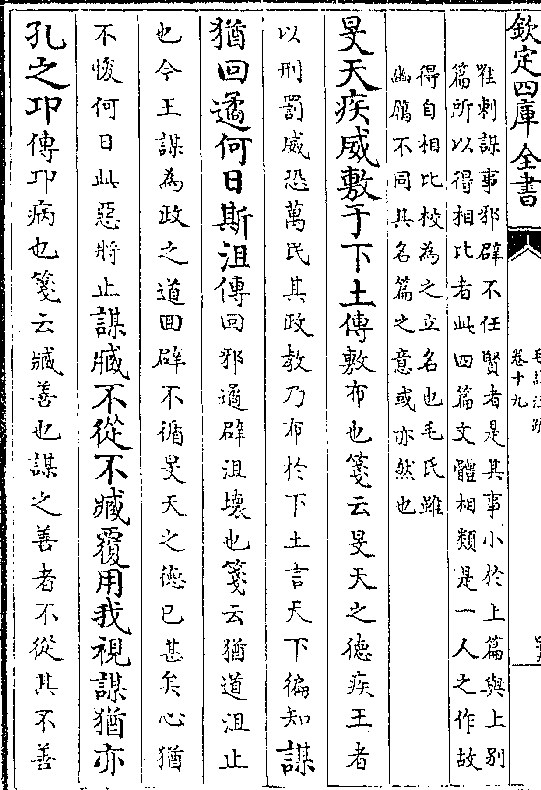 欽定四庫全書
毛詩注疏
卷十九
唯刺謀事邪辟不任賢者是其事小於上篇與上别
篇所以得相比者此四篇文體相類是一人之作故
得自相比校為之立名也毛氏雖
幽厲不同其名篇之意或亦然也
旻天疾威敷于下土傳敷布也箋云旻天之徳疾王者
以刑罰威恐萬民其政教乃布於下土言天下徧知謀
猶回遹何日斯沮傳回邪遹辟沮壊也箋云猶道沮止
也今王謀為政之道回辟不循旻天之徳已甚矣心猶
不悛何日此惡將止謀臧不從不臧覆用我視謀猶亦
孔之卭傳卭病也箋云臧善也謀之善者不從其不善